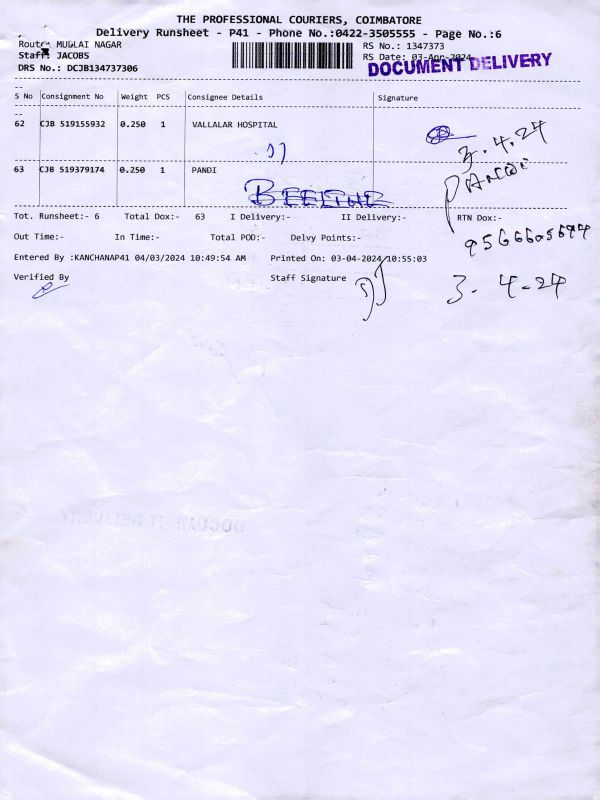 THE PROFESSIONAL COURIERS, COIMBATORE
Delivery Runsheet - P41 - Phone No.:0422-3505555 - Page No.:6
Route: MULLAI NAGAR RS No.: 1347373
Staff: JACOBS RS Date: 03-Apr-2024
DRS No.: DCJB134737306 DOCUMENT DELIVERY
S No Consignment No Weight PCS Consignee Details Signature
62 CJB 519155932 0.250 1 VALLALAR HOSPITAL
3.4.24
63 CJB 519379174 0.250 1 PANDI
PANDI
BEELINE
Tot. Runsheet:- 6 Total Dox:- 63 I Delivery:- II Delivery:- RTN Dox:-
Out Time:- In Time:- Total POD:- Delvy Points:-
Entered By :KANCHANAP41 04/03/2024 10:49:54 AM Printed On: 03-04-2024/10:55:03
Verified By Staff Signature
3-4-24
DOCUMENT DELIVERY